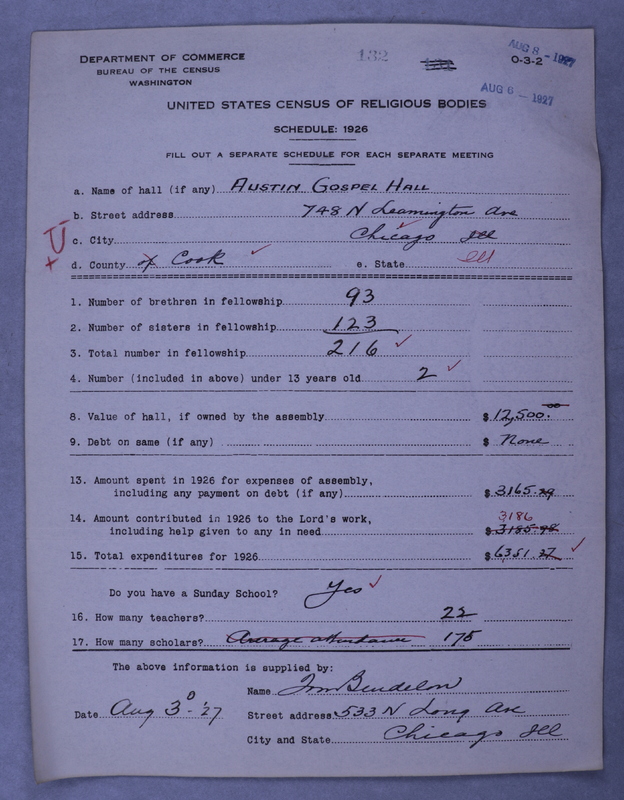 DEPARTMENT OF COMMERCE
BUREAU OF THE CENSUS
WASHINGTON
132
AUG 8 - 1927
O-3-2
AUG 6 - 1927
UNITED STATES CENSUS OF RELIGIOUS BODIES
SCHEDULE: 1926
FILL OUT A SEPARATE SCHEDULE FOR EACH SEPARATE MEETING
a. Name of hall (if any) AUSTIN GOSPEL HALL
b. Street address 748 N Leamington Ave
c. City Chicago Ill
d. County of Cook e. State Ill
U
x
1. Number of brethren in fellowship 93
2. Number of sisters in fellowship 123
3. Total number in fellowship 216
4. Number (included in above) under 13 years old 2
8. Value of hall, if owned by the assembly $ 12,500.00
9. Debt on same (if any) $ None
13. Amount spent in 1926 for expenses of assembly,
including any payment on debt (if any) $ 3165.29
14. Amount contributed in 1926 to the Lord's work, 3186
including help given to any in need $ 3185.98
15. Total expenditures for 1926 $ 6351.27
Do you have a Sunday School? Yes
16. How many teachers? 22
17. How many scholars? Average attendance 175
The above information is supplied by:
Name
Date Aug 3 - '27 Street address 533 N Long Ave
City and State Chicago Ill